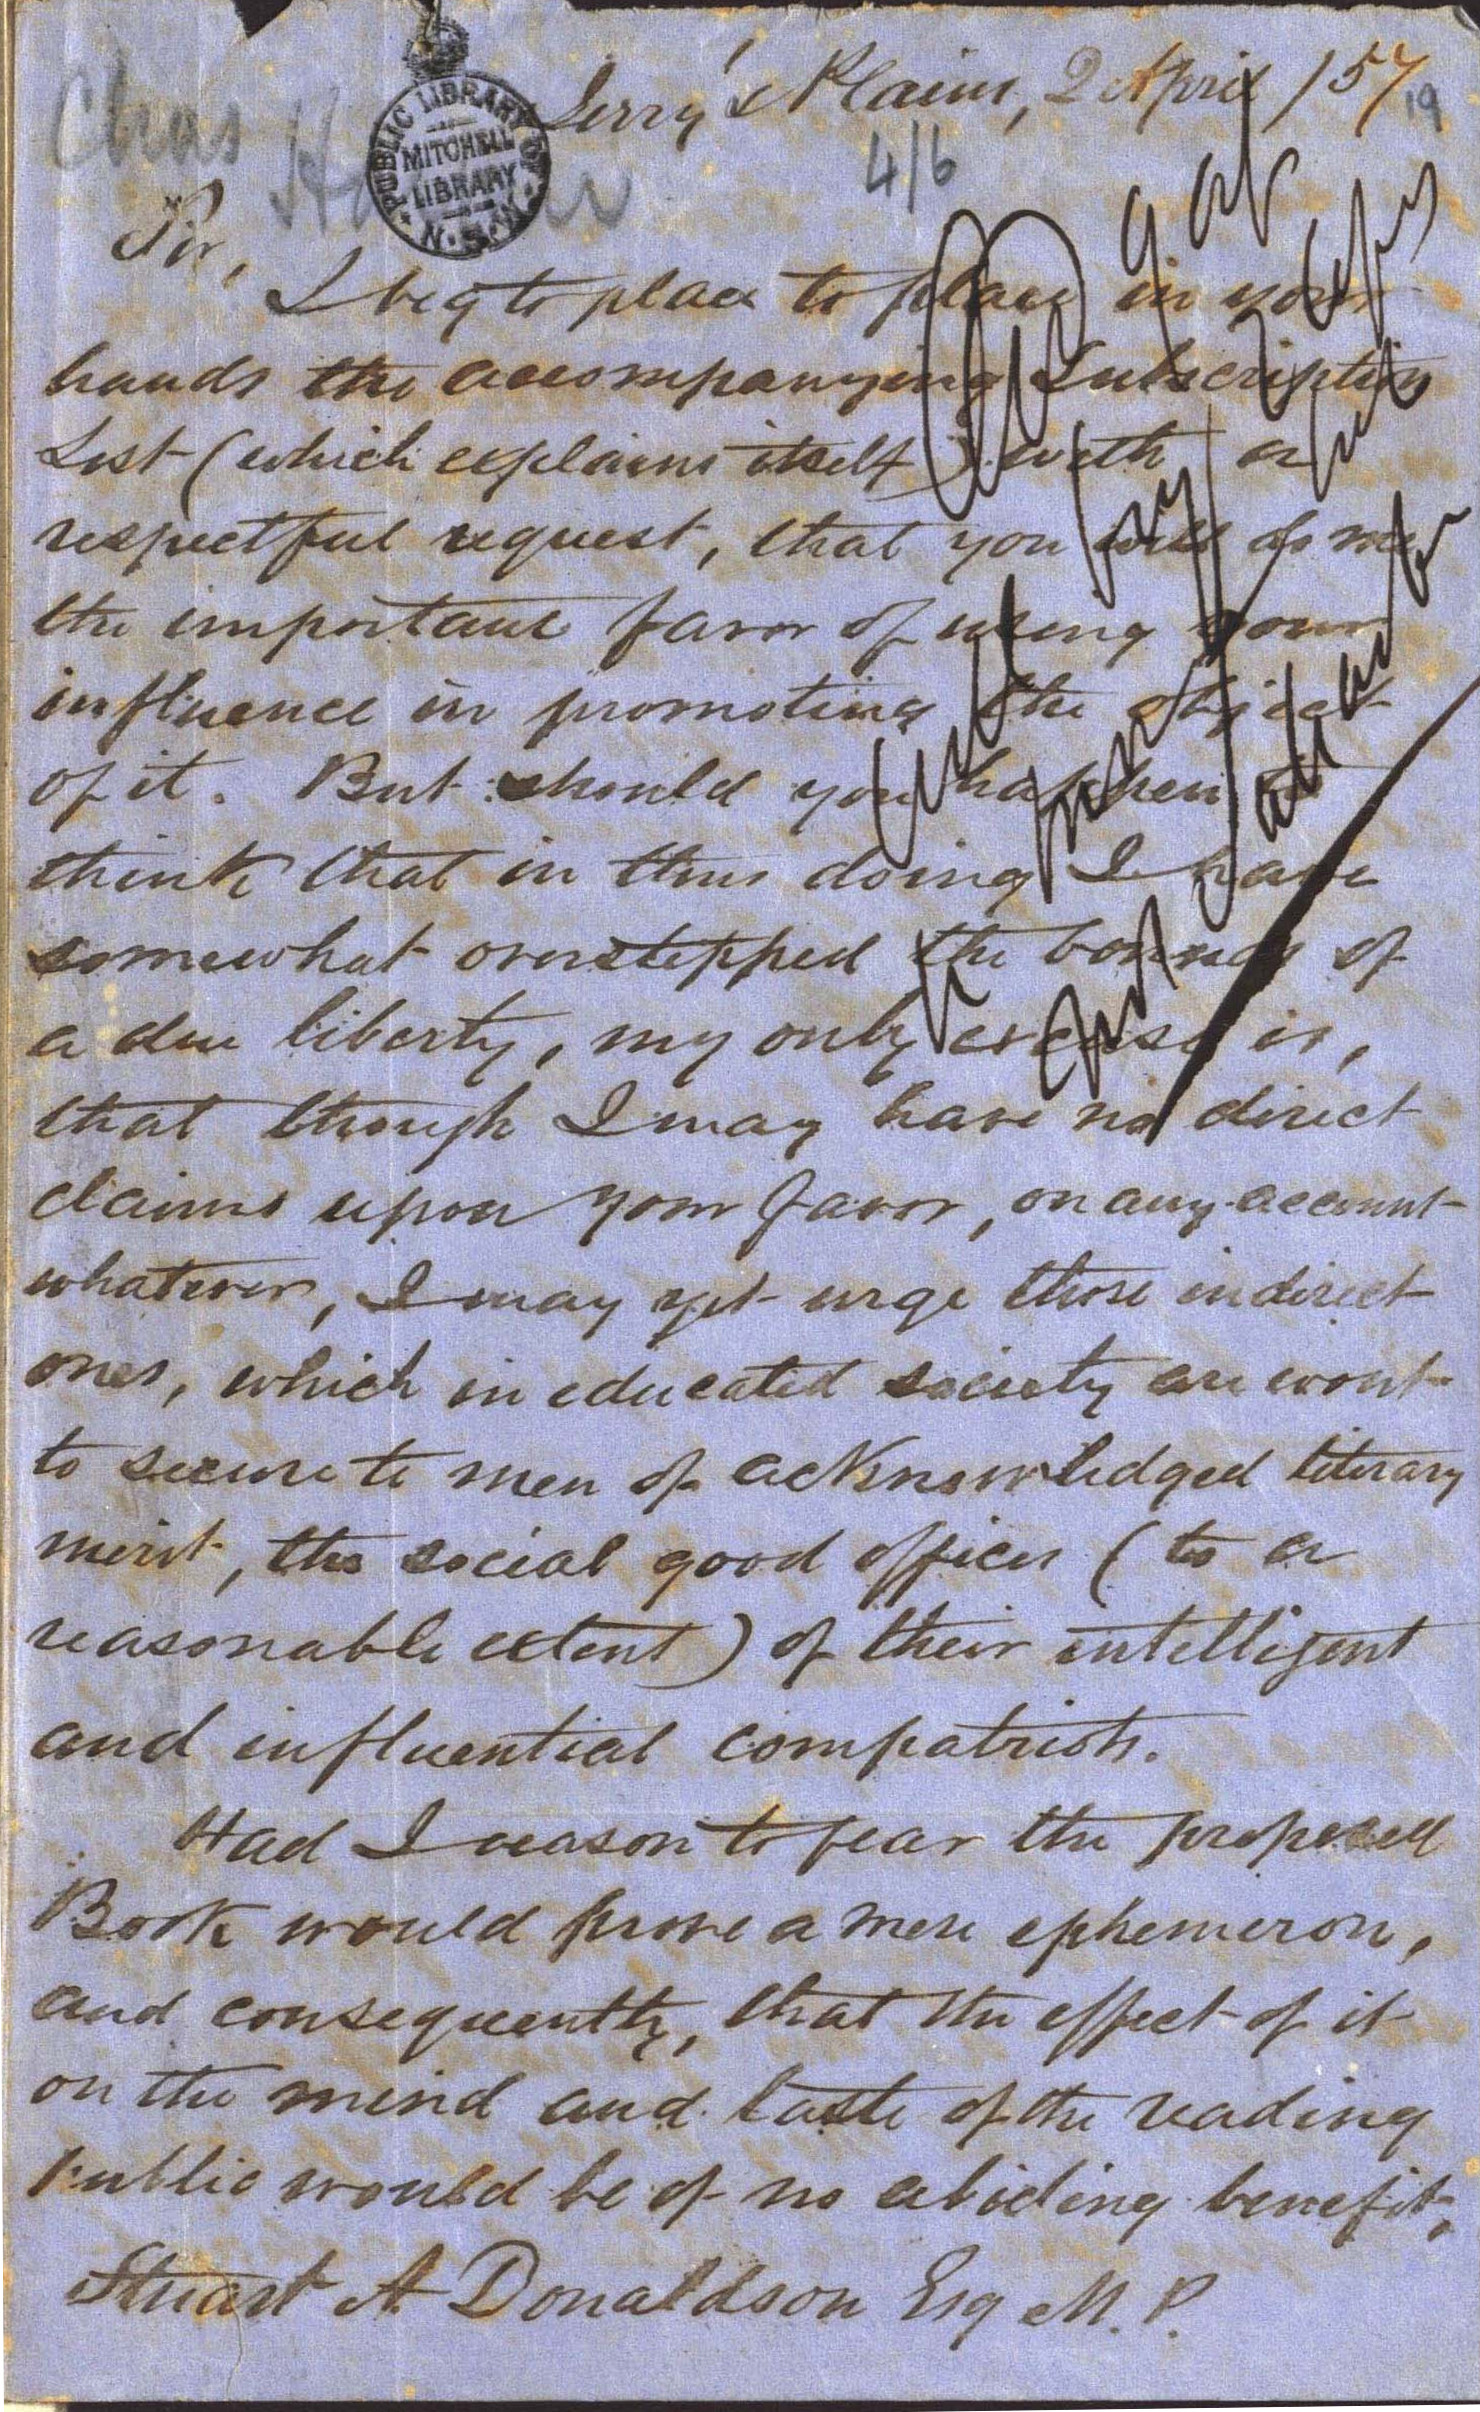 Chas
PUBLIC LIBRARY OF
MITCHELL
LIBRARY
N.S.W.
Jerry's Plains, 2 April /57
19
4/6
Sir,
I beg to place to place in your
hands the accompanying Subscription
List (which explains itself) with a
respectful request, that you will do me
the important favor of using your
influence in promoting the object
of it. But should you happen to
think that in thus doing I have
somewhat overstepped the bounds of
a due liberty, my only excuse is,
that though I may have no direct
claims upon your favor, on any account
whatever, I may yet urge those indirect
ones, which in educated society are wont
to secure to men of acknowledged literary
merit, the social good offices (to a
reasonable extent) of their intelligent
and influential compatriots.
Had I reason to fear the proposed
Book would prove a mere ephemeron,
and consequently, that the effect of it
on the mind and taste of the reading
Public would be of no abiding benefit,
Stuart A. Donaldson Esq M.P.